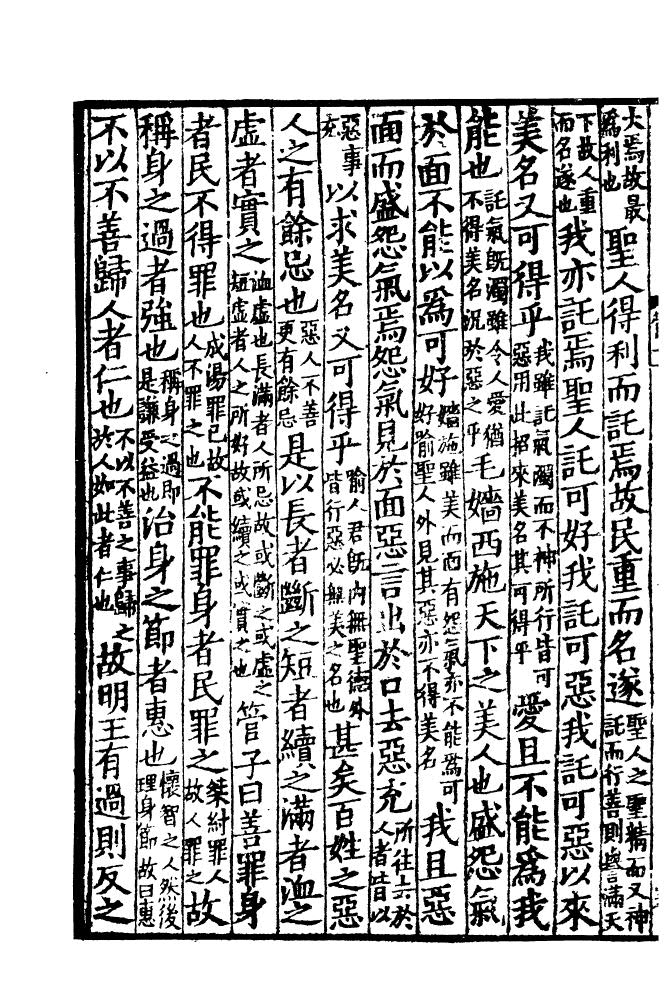 大焉故最爲利也聖人得利而託焉故民重而名遂聖人之聖精而又神託而行善則譽言滿天
下故人重而名遂也我亦託焉聖人託可好我託可惡我託可惡以來
美名又可得乎我雖託氣濁而不神所行皆可惡用此招來美名其可得乎愛且不能爲我
能也託氣旣濁雖令人愛猶不得美名況於惡之乎毛嬙西施天下之美人也盛怨氣
於面不能以爲可好嬙施雖美而面有怨氣亦不能爲可好喻聖人外見其惡亦不得美名我且惡
面而盛怨氣焉怨氣見於面惡言出於口去惡充所往去於人者皆以
惡事充以求美名又可得乎喻人君旣內無聖德外皆行惡必無美之名也甚矣百姓之惡
人之有餘忌也惡人不善更有餘忌是以長者斷之短者續之滿者洫之
虛者實之洫虛也長滿者人所忌故或斷之或虛之短虛者人之所好故或續之或實之也管子曰善罪身
者民不得罪也成湯罪已故人不罪之也不能罪身者民罪之桀紂罪人故人罪之故
稱身之過者強也稱身之過即是謙受益也治身之節者惠也懷智之人然後理身節故曰惠
不以不善歸人者仁也不以不善之事歸之於人如此者仁也故明王有過則反之